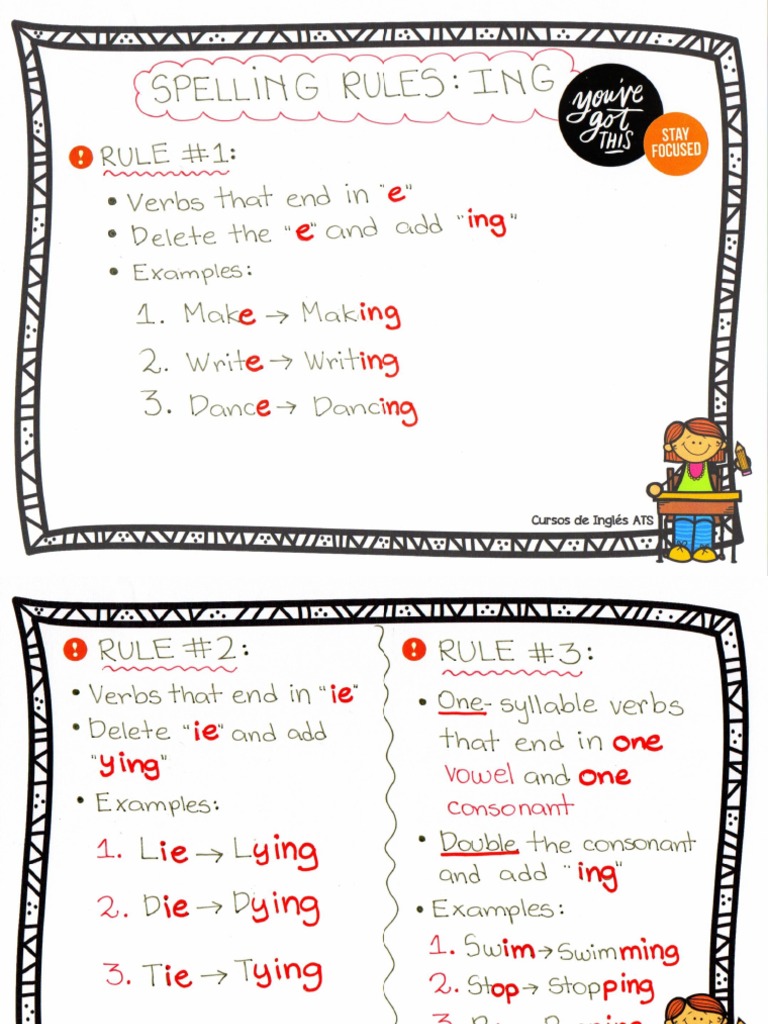 SPELLING RULES: ING
you've
got
THIS
STAY
FOCUSED
! RULE #1:
• Verbs that end in "e"
• Delete the "e" and add "ing"
• Examples:
1. Make → Making
2. Write → Writing
3. Dance → Dancing
Cursos de Inglés ATS
! RULE #2:
• Verbs that end in "ie"
• Delete "ie" and add
"ying"
• Examples:
1. Lie → Lying
2. Die → Dying
3. Tie → Tying
! RULE #3:
• One-syllable verbs
that end in one
vowel and one
consonant
• Double the consonant
and add "ing"
• Examples:
1. Swim → Swimming
2. Stop → Stopping
3.